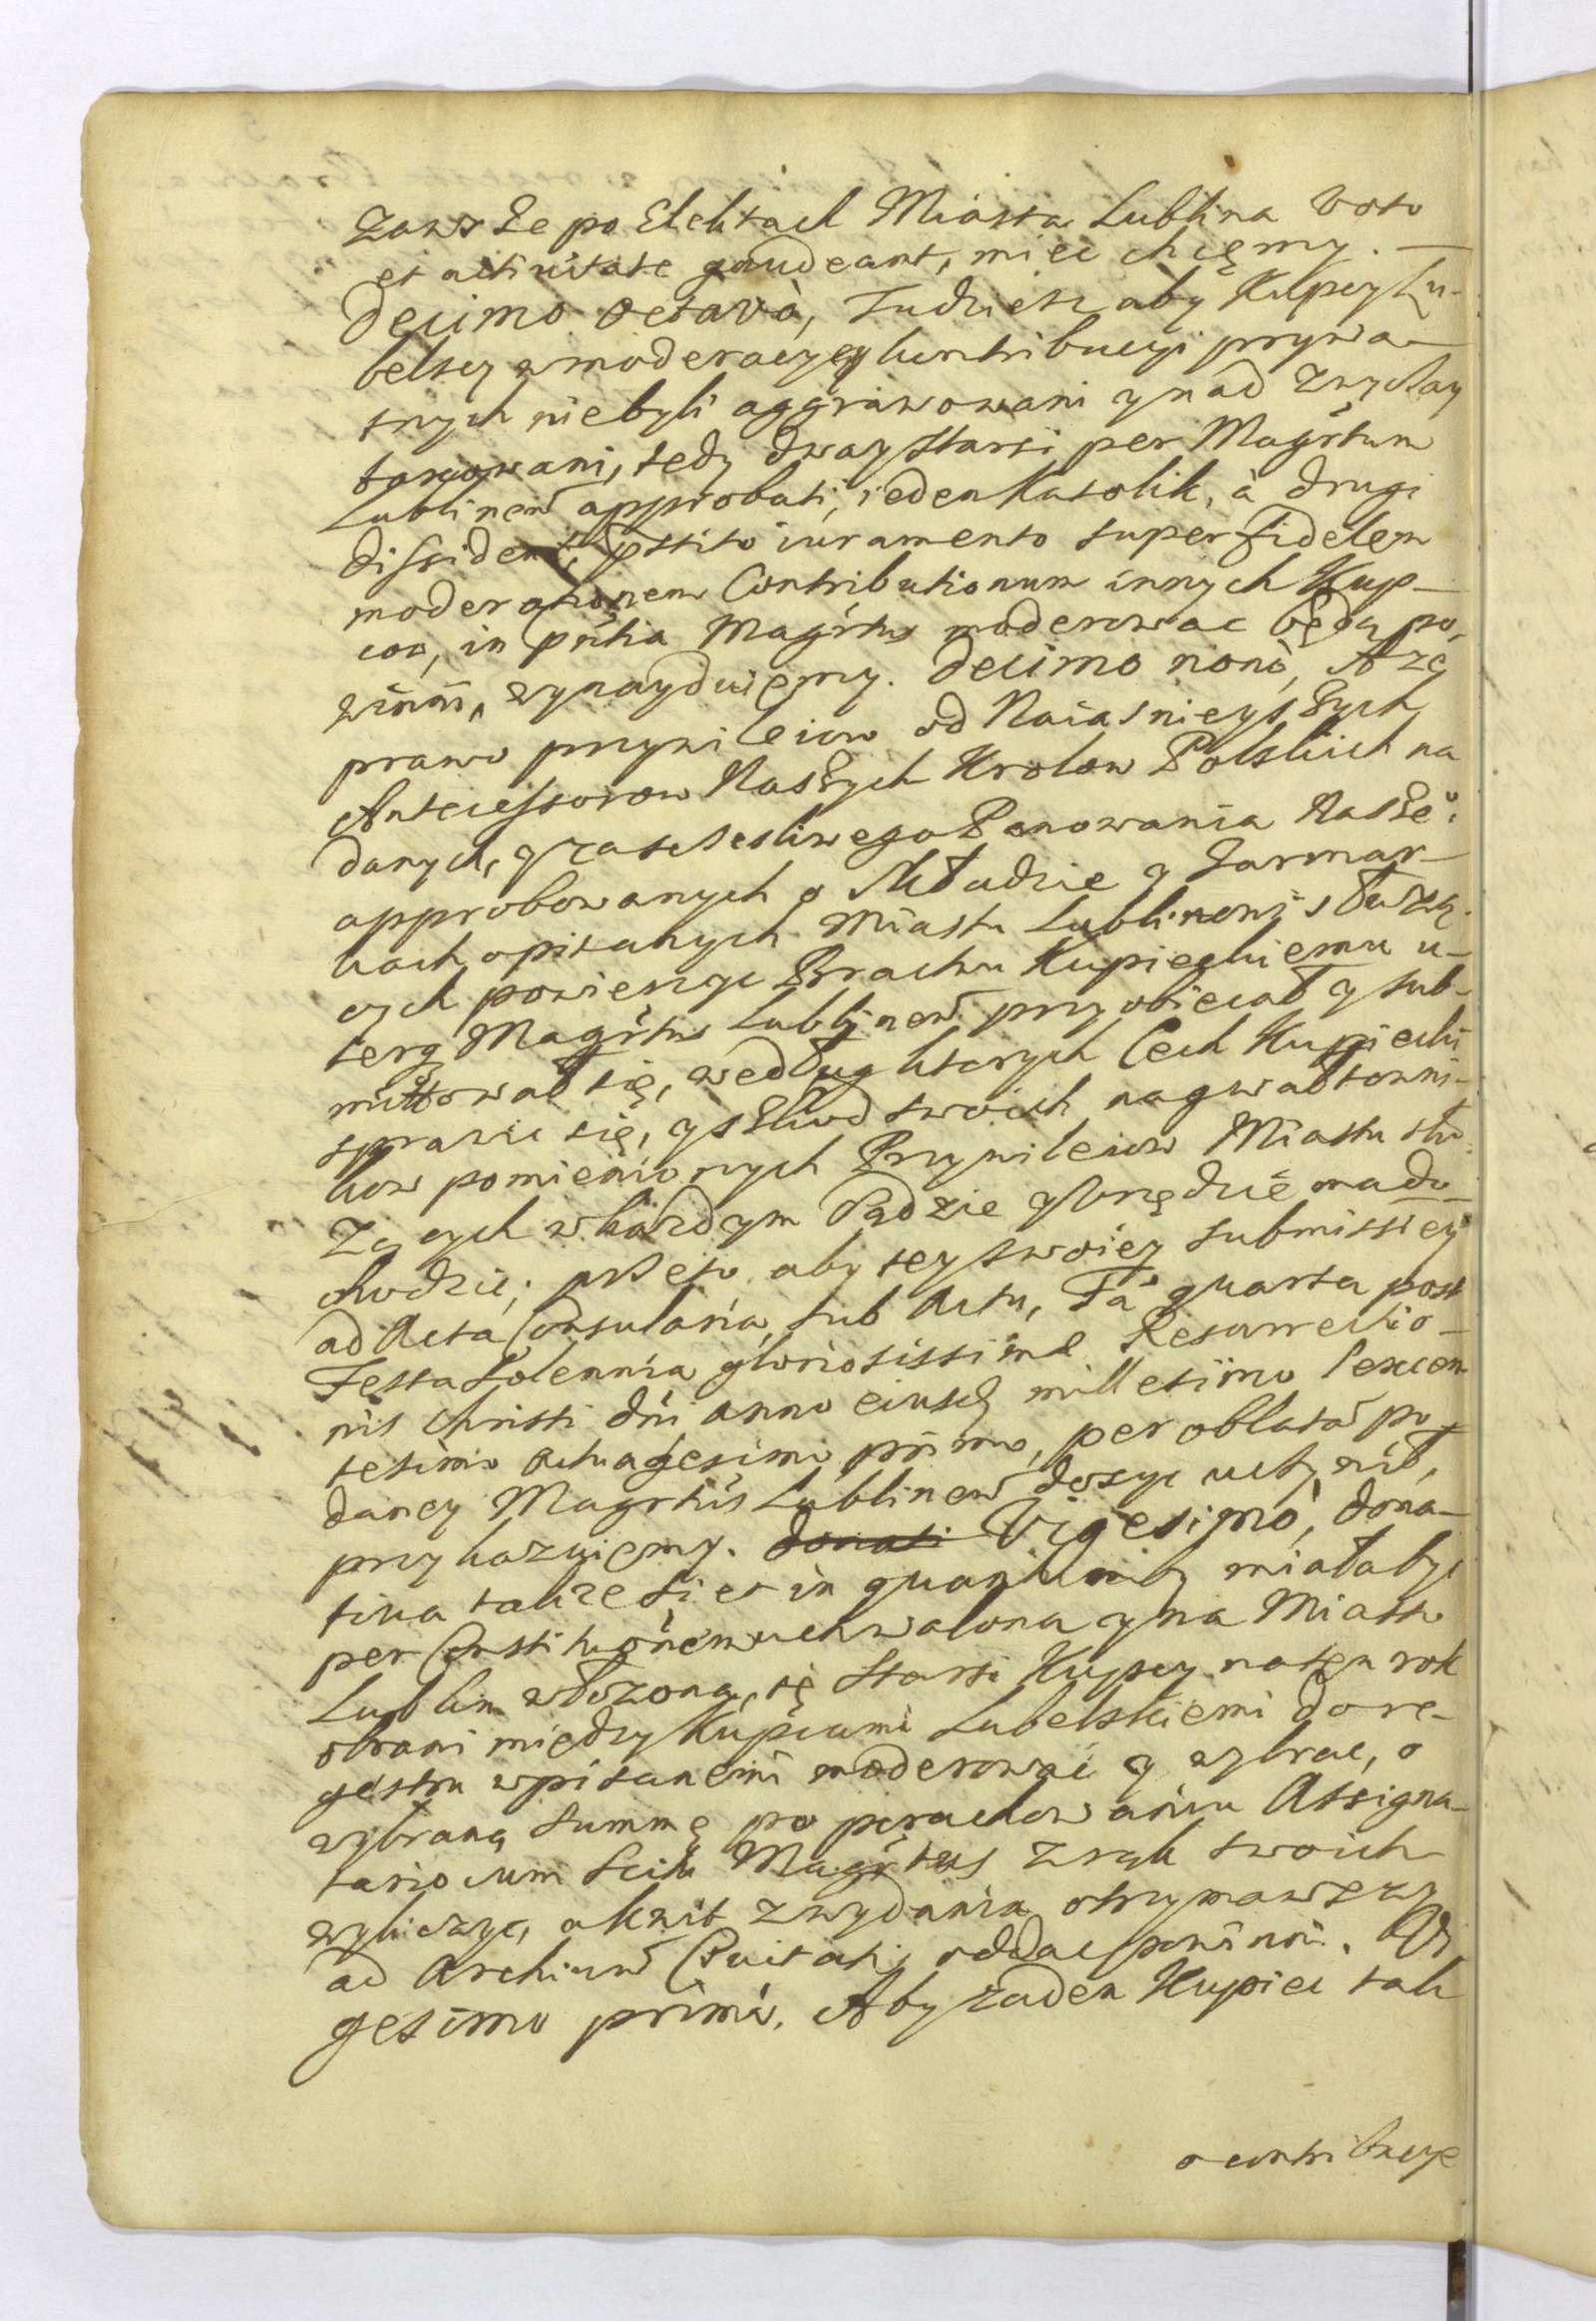 zawsze po Elektach Miasta Lublina Voto
et activitate gaudeant, miec chcęmy. —
Decimo octavò, Tudziesz aby Kupcy Lu-
belscy w moderacyey kontribucyi prywa-
tnych niebyli aggrawowani y nad zwyczay
taxowani, tedy dway Starsi per Magrtum
Lublinen approbati, ieden Katolik, à drugi
dissident, pstito iuramento super fidelem
moderationem Contributionum innych Kup-
cow, in pntia Magrtus moderowac będą po,
winni, wynayduiemy. Decimo nonò, A że
prawo przywileiow od Naiasnieyszych
Antecessorow Naszych Krolow Polskich na
danych, y za szczesliwego Panowania Nasze°
approbowanych o Składzie y Jarmar-
kach opisanych Miastu Lublinowi służą-
cych powierzyc Bractwu Kupieckiemu u-
terq Magrtus Lublinen przyobiecał y sub-
mittował się, według ktorych Cech Kupiecki
sprawic się, y szkod swoich na gwałtowni-
kow pomienionych Przywileiow Miastu słu-
żących w każdym Sądzie y Urzędzie ma do-
chodzic; przeto aby tey swoiey submissiey
ad Acta Consularia, sub Actu, Fa quarta post
Festa Solennia gloriosissimae Resurrectio-
nis Christi dni anno eiusd millesimo sexcen
tesimo octuagesimo primo, per oblatam po-
daney Magrtus Lublinen dosyc uczynił,
przykazuiemy. donati Vigesimò, dona-
tiua także si et in quantum miałaby
per Constitutionem uchwalona y na Miasto
Lublin włożona, tę Starsi Kupcy na ten rok
obrani między Kupcami Lubelskiemi do re-
gestru wpisanemi moderowac y wybrac, o
wybraną summę po porachowaniu Assigna-
tario cum scitu Magrtus z rąk swoich
wyliczyc, a kwit z wydania otrzymawszy
ad Archiuum Ciuitatis oddac powinni. Vi
gesimo primò, Aby żaden Kupiec tak
o contribucye